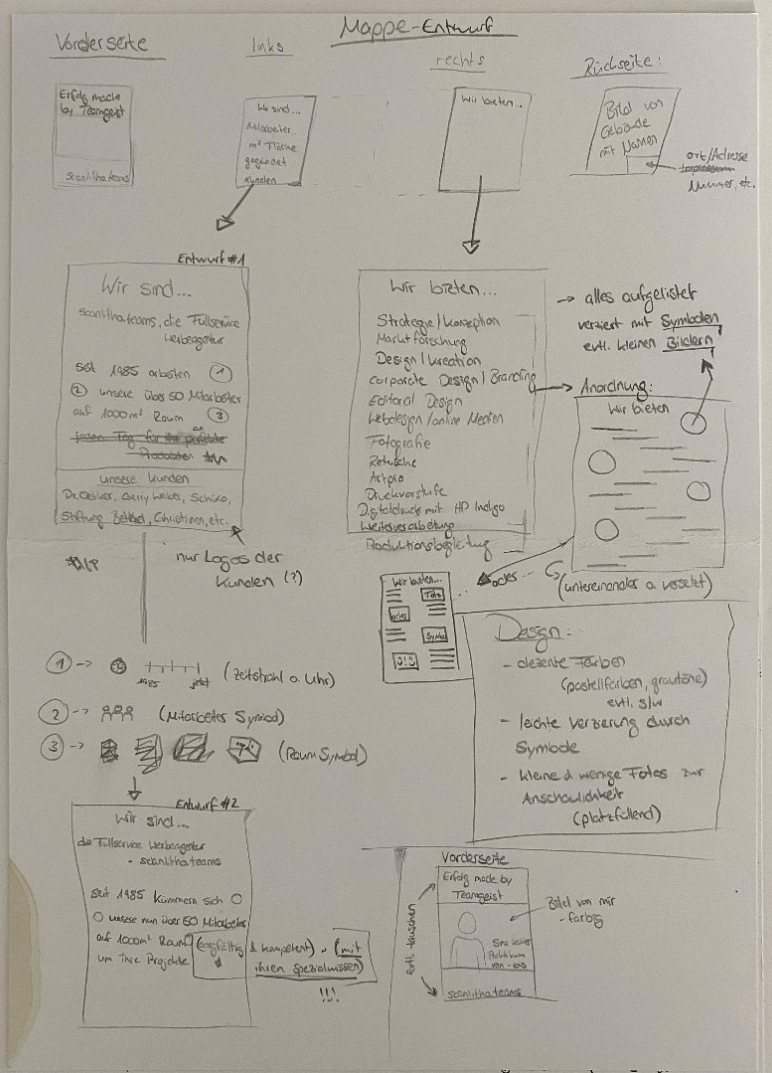 Mappe-Entwurf
Vorderseite
links
rechts
Rückseite:
Erfolg made
by Teamgeist
scanlithateams
Wir sind...
Mitarbeiter...
m² Fläche
gegründet
Kunden
Wir bieten...
Bild von
Gebäude
mit Namen
Ort/Adresse
Nummer, etc.
Entwurf #1
Wir sind...
scanlithateams, die Fullservice
Werbeagentur
seit 1985 arbeiten 1
2 unsere über 50 Mitarbeiter
auf 1000m² Raum 3
jeden Tag für
unsere Kunden
Dr. Oetker, Gerry Weber, Schüco,
Stiftung Bethel, Christinen, etc.
nur Logos der
Kunden (?)
Wir bieten...
Strategie/Konzeption
Marktforschung
Design/Kreation
Corporate Design/Branding
Editorial Design
Webdesign/online Medien
Fotografie
Retusche
Artpro
Druckvorstufe
Digitaldruck mit HP Indigo
Weiterverarbeitung
Produktionsbegleitung
→ alles aufgelistet
verziert mit Symbolen
evtl. kleinen Bildern
→ Anordnung:
Wir bieten
(untereinander o. versetzt)
oder...
Wir bieten...
Foto
Symbol
1 → 1985 jetzt (Zeitstrahl o. Uhr)
2 → (Mitarbeiter Symbol)
3 → (Raum Symbol)
Design:
- dezente Farben
(pastellfarben, grautöne)
evtl. s/w
- leichte Verzierung durch
Symbole
- kleine & wenige Fotos zur
Anschaulichkeit
(platzfüllend)
Entwurf #2
Wir sind...
die Fullservice Werbeagentur
- scanlithateams
seit 1985 kümmern sich
unsere nun über 50 Mitarbeiter
auf 1000m² Raum (sorgfältig & kompetent) - (mit
um ihre Projekte ihren Spezialwissen)
!!!
Vorderseite
Erfolg made by
Teamgeist
evtl. tauschen
Bild von mir
- farbig
Praktikum
von - bis
scanlithateams